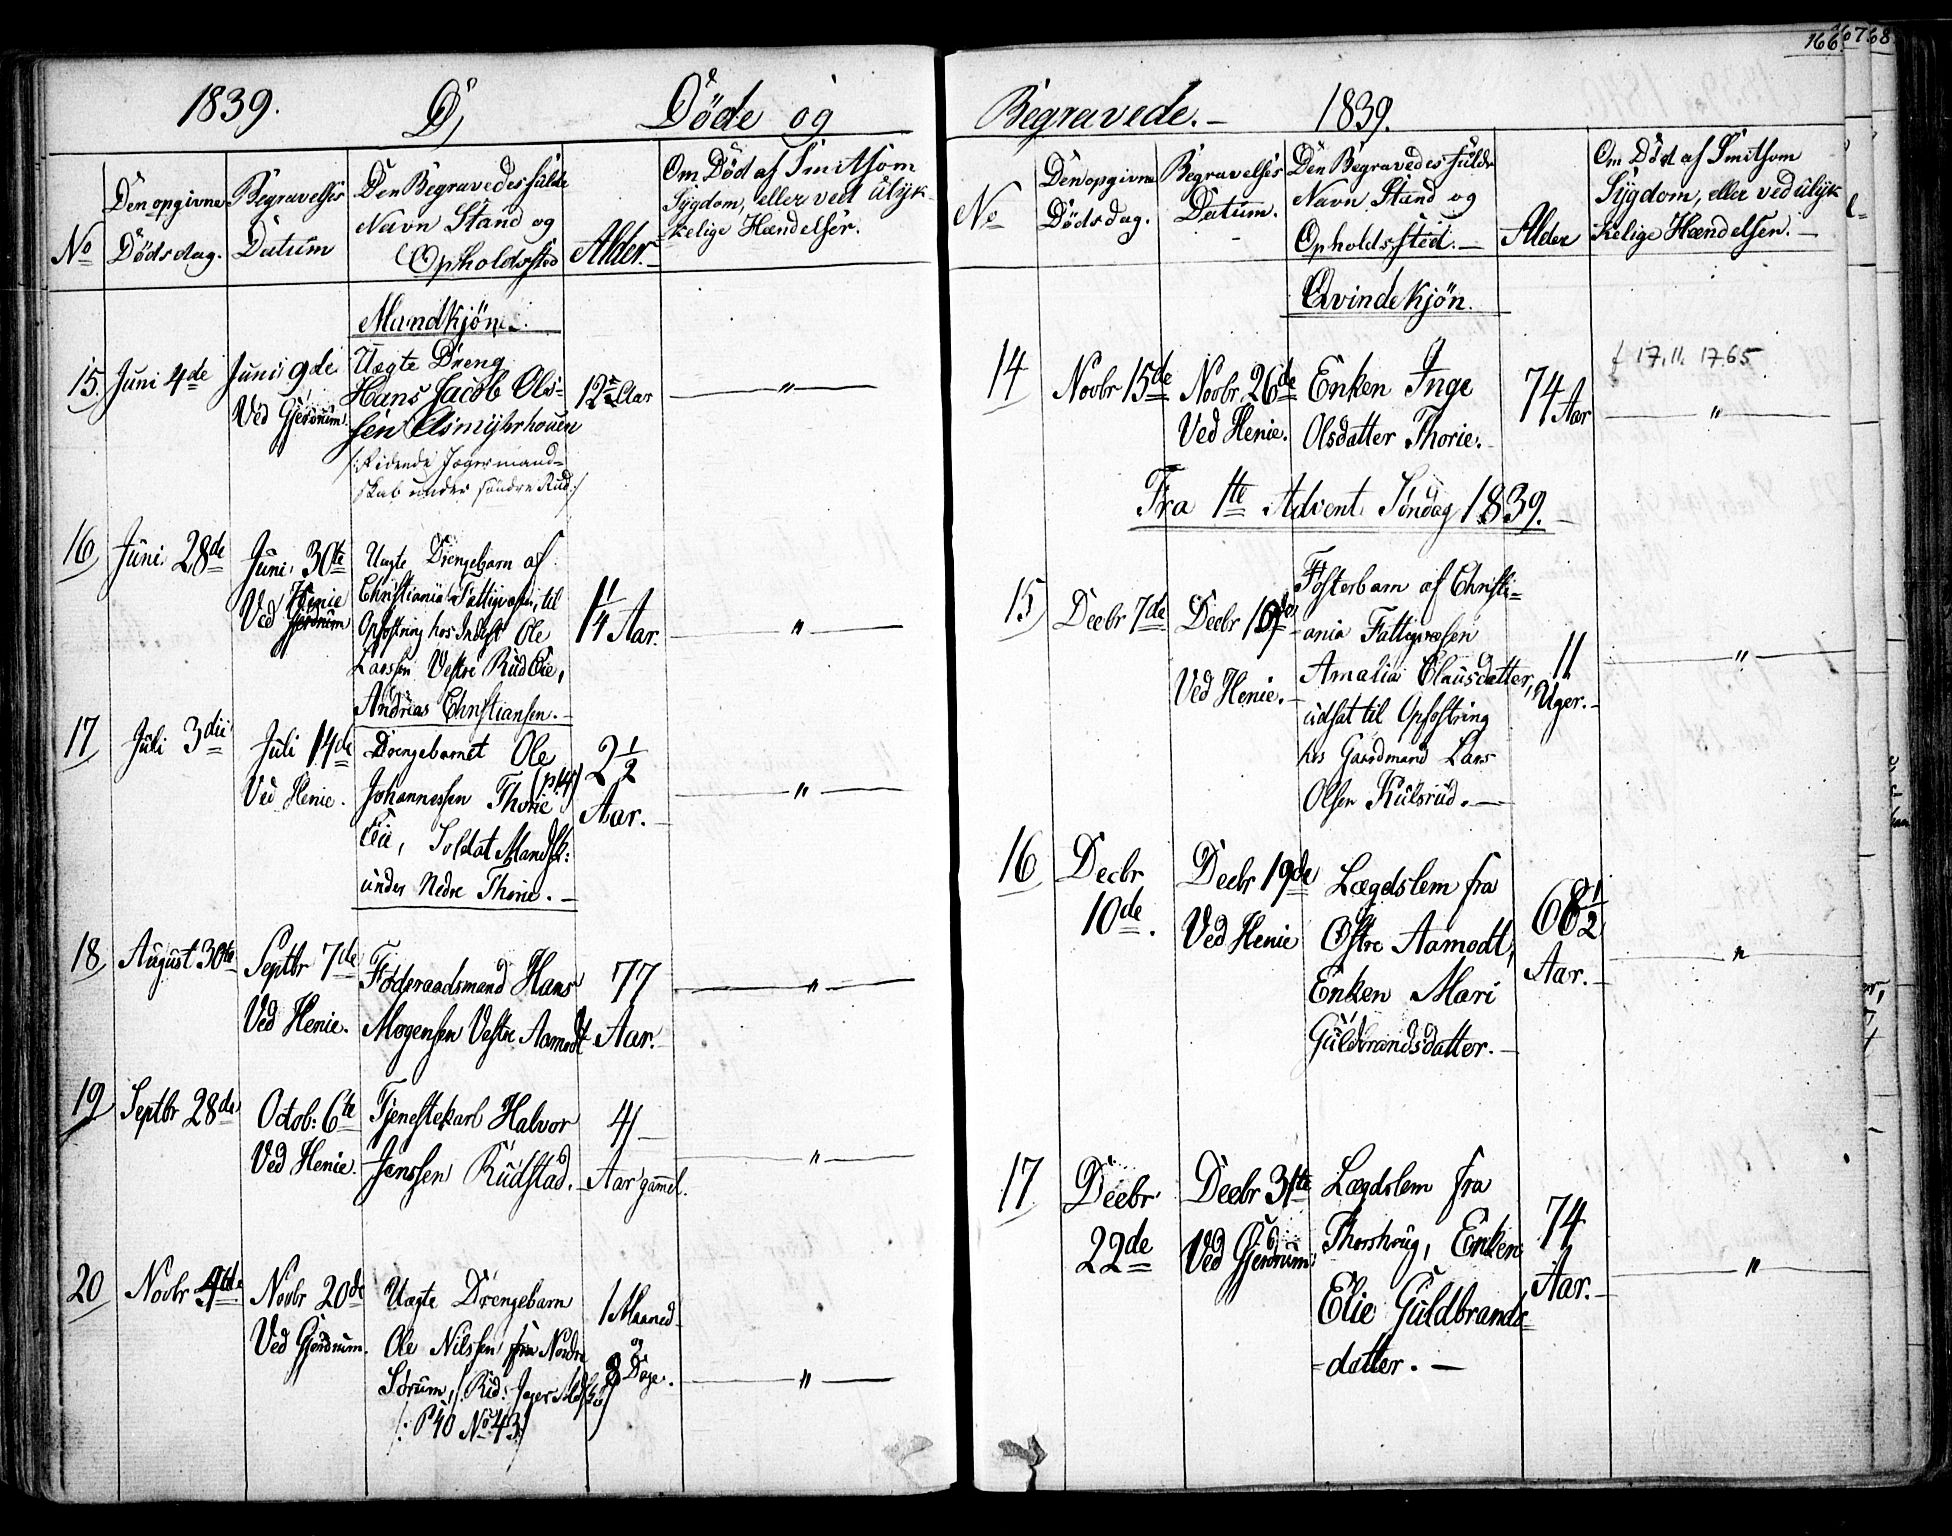 1839. D, Döde og
No
Den opgivne
Dödsdag.
Begravelses
Datum
Den Begravedes fulde
Navn Stand og
Opholdssted
Alder.
Om Död af Smitsom
Sygdom, eller ved ulyk-
kelige Hændelser.
Mandkjön.
15. Juni 4de
Juni 9de
Ved Gjerdrum.
Uægte Dreng
Hans Jacob Ols-
sen Asmyhrhouen
/: Ridende Jægermand-
skab under söndre Rud :/
12 Aar
"
16 Juni 28de
Juni 30te
Henie
Ved Gjerdrum
Uægte Drengebarn af
Christiania Fattigvæsen, til
Opfostring hos Inderst Ole
Larssen Vestre Rud Eie,
Andrias Christiansen.
1 1/4 Aar.
"
17 Juli 3die
Juli 14de
Ved Henie.
Drengebarnet Ole
Johannessen Thorie (p. 14)
Eie, Soldat Mandsk:
under Nedre Thorie.
2 1/2
Aar.
"
18 August 30te
Septbr 7de
Ved Henie.
Föderaadsmand Hans
Mogensen Vestre Aamodt
77
Aar.
"
19 Septbr 28de
Octob: 6te
Ved Henie.
Tjenestekarl Halvor
Jenssen Rudstad.
41
Aar gammel.
"
20 Novbr
Novbr 20de
Ved Gjerdrum.
Uægte Drengebarn
Ole Nilssen fra Nordre
Sörum, /: Rid: Jæger
/: P 40 No 43
1 Maaned
og
8 Dage.
"
166 67 68
Begravede. 1839.
No
Den opgivne
Dödsdag.
Begravelses
Datum.
Den Begravedes fulde
Navn Stand og
Opholdssted.
Alder
Om Död af Smitsom
Sygdom, eller ved ulyk
kelige Hændelser.
Qvindekjön.
14
Novbr 15de
Novbr. 26de
Ved Henie.
Enken Inge
Olsdatter Thorie.
74 Aar
f 17.11.1765
"
Fra 1te Advent Söndag 1839.
15
Decbr 7de
Decbr
Ved Henie.
Fosterbarn af Christi-
ania Fattigvæsen
Amalia Clausdatter,
udsat til Opfostring
hos Gaardmand Lars
Olsen Kulsrud.
11
Uger.
"
16
Decbr
10de.
Decbr 19de
Ved Henie
Lægdslem fra
Östre Aamodt,
Enken Mari
Guldbrandsdatter.
68 1/2
Aar.
"
17
Decbr
22de
Decbr 31te
Ved Gjerdrum
Lægdslem fra
Thorshoug, Enken
Elie Guldbrands-
datter.
74
Aar.
"